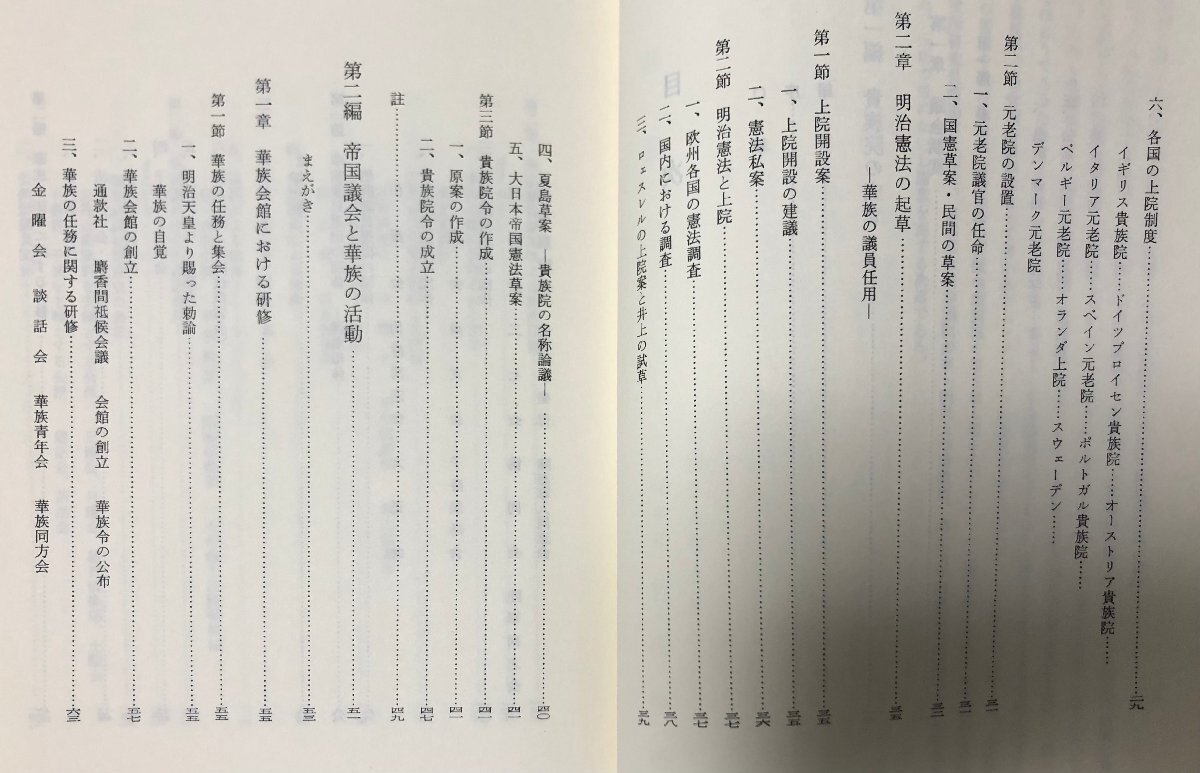 六、各国の上院制度……二九
イギリス貴族院……ドイツプロイセン貴族院……オーストリア貴族院……
イタリア元老院……スペイン元老院……ポルトガル貴族院……
ベルギー元老院……オランダ上院……スウェーデン……
デンマーク元老院
第二節　元老院の設置……三一
一、元老院議官の任命……三一
二、国憲草案・民間の草案……三二
第二章　明治憲法の起草……三五
―華族の議員任用―
第一節　上院開設案……三五
一、上院開設の建議……三五
二、憲法私案……三六
第二節　明治憲法と上院……三七
一、欧州各国の憲法調査……三七
二、国内における調査……三八
三、ロェスレルの上院案と井上の試草……三九
四、夏島草案　―貴族院の名称論議―……四〇
五、大日本帝国憲法草案……四一
第三節　貴族院令の作成……四一
一、原案の作成……四一
二、貴族院令の成立……四七
註……四九
第二編　帝国議会と華族の活動……五一
まえがき……五三
第一章　華族会館における研修……五五
第一節　華族の任務と集会……五五
一、明治天皇より賜った勅諭……五五
華族の自覚
二、華族会館の創立……五七
通款社　麝香間祗候会議　会館の創立　華族令の公布
三、華族の任務に関する研修……六三
金曜会談話会　華族青年会　華族同方会